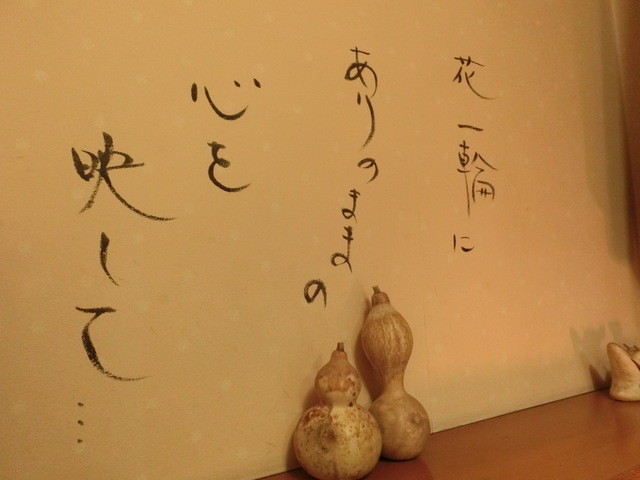 花一輪に
ありのままの
心を
映して…